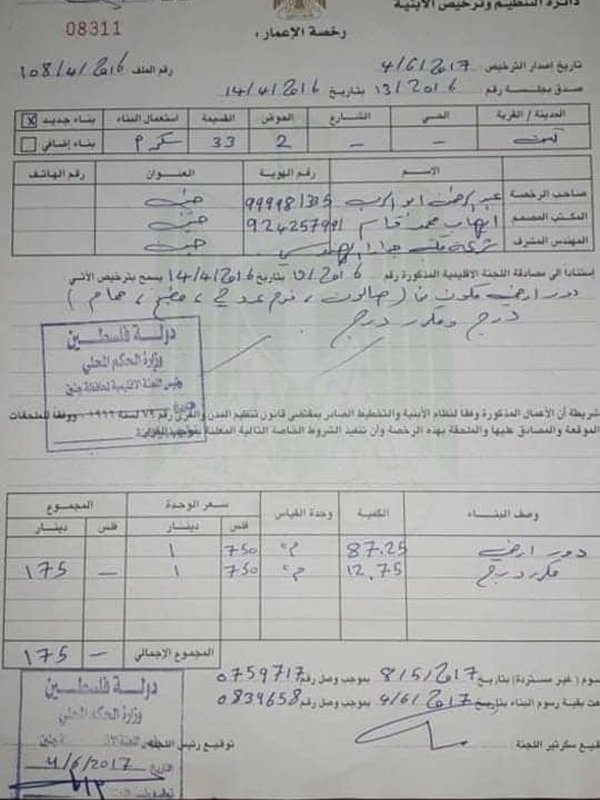 دائرة التنظيم وترخيص الأبنية
08311
رخصة الإعمار
تاريخ إصدار الترخيص 4/6/2017 رقم الملف 108/4/2016
صدق بجلسة رقم 13/2016 بتاريخ 14/4/2016
المدينة / القرية الحي الشارع الحوض القسيمة استعمال البناء بناء جديد x
– – 2 33 بناء إضافي
الاسم رقم الهوية العنوان رقم الهاتف
صاحب الرخصة عبد الرحمن ابو الرب 999981335 جنين
المكتب المصمم ايهاب محمد قاسم 924257991 جنين
المهندس المشرف شركة مكتب الهندسي جنين
إستناداً الى مصادقة اللجنة الاقليمية المذكورة رقم 13/2016 بتاريخ 14/4/2016 يسمح بترخيص الأتي
دور ارضي مكون من (صالون، نوم عدد 2، مطبخ، حمام)
درج ومكرر درج
دولة فلسطين
وزارة الحكم المحلي
رئيس اللجنة الاقليمية لمحافظة جنين
شريطة أن الأعمال المذكورة وفقاً لنظام الأبنية والتخطيط الصادر بمقتضى قانون تنظيم المدن والقرى رقم ٧٩ لسنة ١٩٦٦ ووفقاً للملحقات
الموقعة والمصادق عليها والملحقة بهذه الرخصة وأن تنفيذ الشروط الخاصة التالية المعلنة
وصف البناء الكمية وحدة القياس سعر الوحدة المجموع
فلس دينار فلس دينار
دور ارضي 87.25 م٢ 750 1
مكرر درج 12.75 م٢ 750 1 – 175
المجموع الإجمالي – 175
رسوم (غير مستردة) بتاريخ 8/5/2017 بموجب وصل رقم 0759717
بقية رسوم البناء بتاريخ 4/6/2017 بموجب وصل رقم 0839658
دولة فلسطين
وزارة الحكم المحلي
توقيع سكرتير اللجنة توقيع رئيس اللجنة
التاريخ 4/6/2017